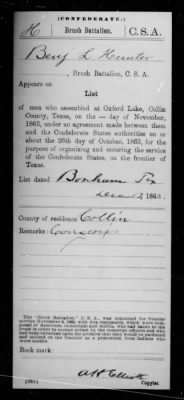 (CONFEDERATE.)
H Brush Battalion. C.S.A.
Benj L Hunter
, Brush Battalion, C. S. A.
Appears on
List
of men who assembled at Oxford Lake, Collin
County, Texas, on the — day of November,
1863, under an agreement made between them
and the Confederate States authorities on or
about the 26th day of October, 1863, for the
purpose of organizing and entering the service
of the Confederate States, on the frontier of
Texas.
List dated Bonham Tex
2, 1863.
County of residence Collin
Remarks: Conscript
The "Brush Battalion," C. S. A., was organized for frontier
Book mark:
Copyist.